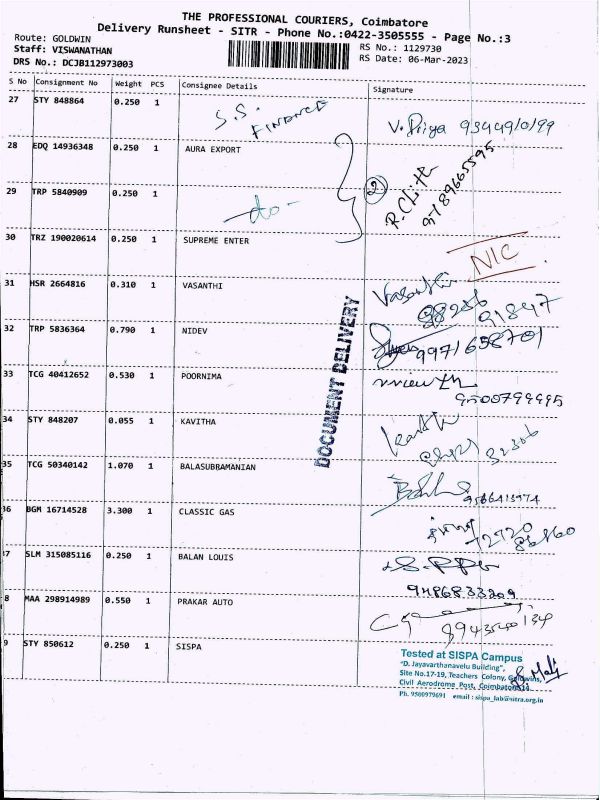 THE PROFESSIONAL COURIERS, Coimbatore
Delivery Runsheet - SITR - Phone No.:0422-3505555 - Page No.:3
Route: GOLDWIN
Staff: VISWANATHAN
DRS No.: DCJB112973003
RS No.: 1129730
RS Date: 06-Mar-2023
S No Consignment No Weight PCS Consignee Details Signature
27 STY 848864 0.250 1 S.S. FINANCE V. Priya
28 EDQ 14936348 0.250 1 AURA EXPORT
29 TRP 5840909 0.250 1 -do- 2
9789665595
30 TRZ 190020614 0.250 1 SUPREME ENTER NIC
31 HSR 2664816 0.310 1 VASANTHI
91847
32 TRP 5836364 0.790 1 NIDEV 9971658701
33 TCG 40412652 0.530 1 POORNIMA
9500799995
34 STY 848207 0.055 1 KAVITHA
35 TCG 50340142 1.070 1 BALASUBRAMANIAN
36 BGM 16714528 3.300 1 CLASSIC GAS
72720
37 SLM 315085116 0.250 1 BALAN LOUIS
9486833209
8 MAA 298914989 0.550 1 PRAKAR AUTO
9 STY 850612 0.250 1 SISPA
DOCUMENT DELIVERY
Tested at SISPA Campus
"D. Jayavarthanavelu Building",
Site No.17-19, Teachers Colony, Goldwins,
Civil Aerodrome Post, Coimbatore-14.
Ph. 9500979691 email : sispa_lab@sitra.org.in